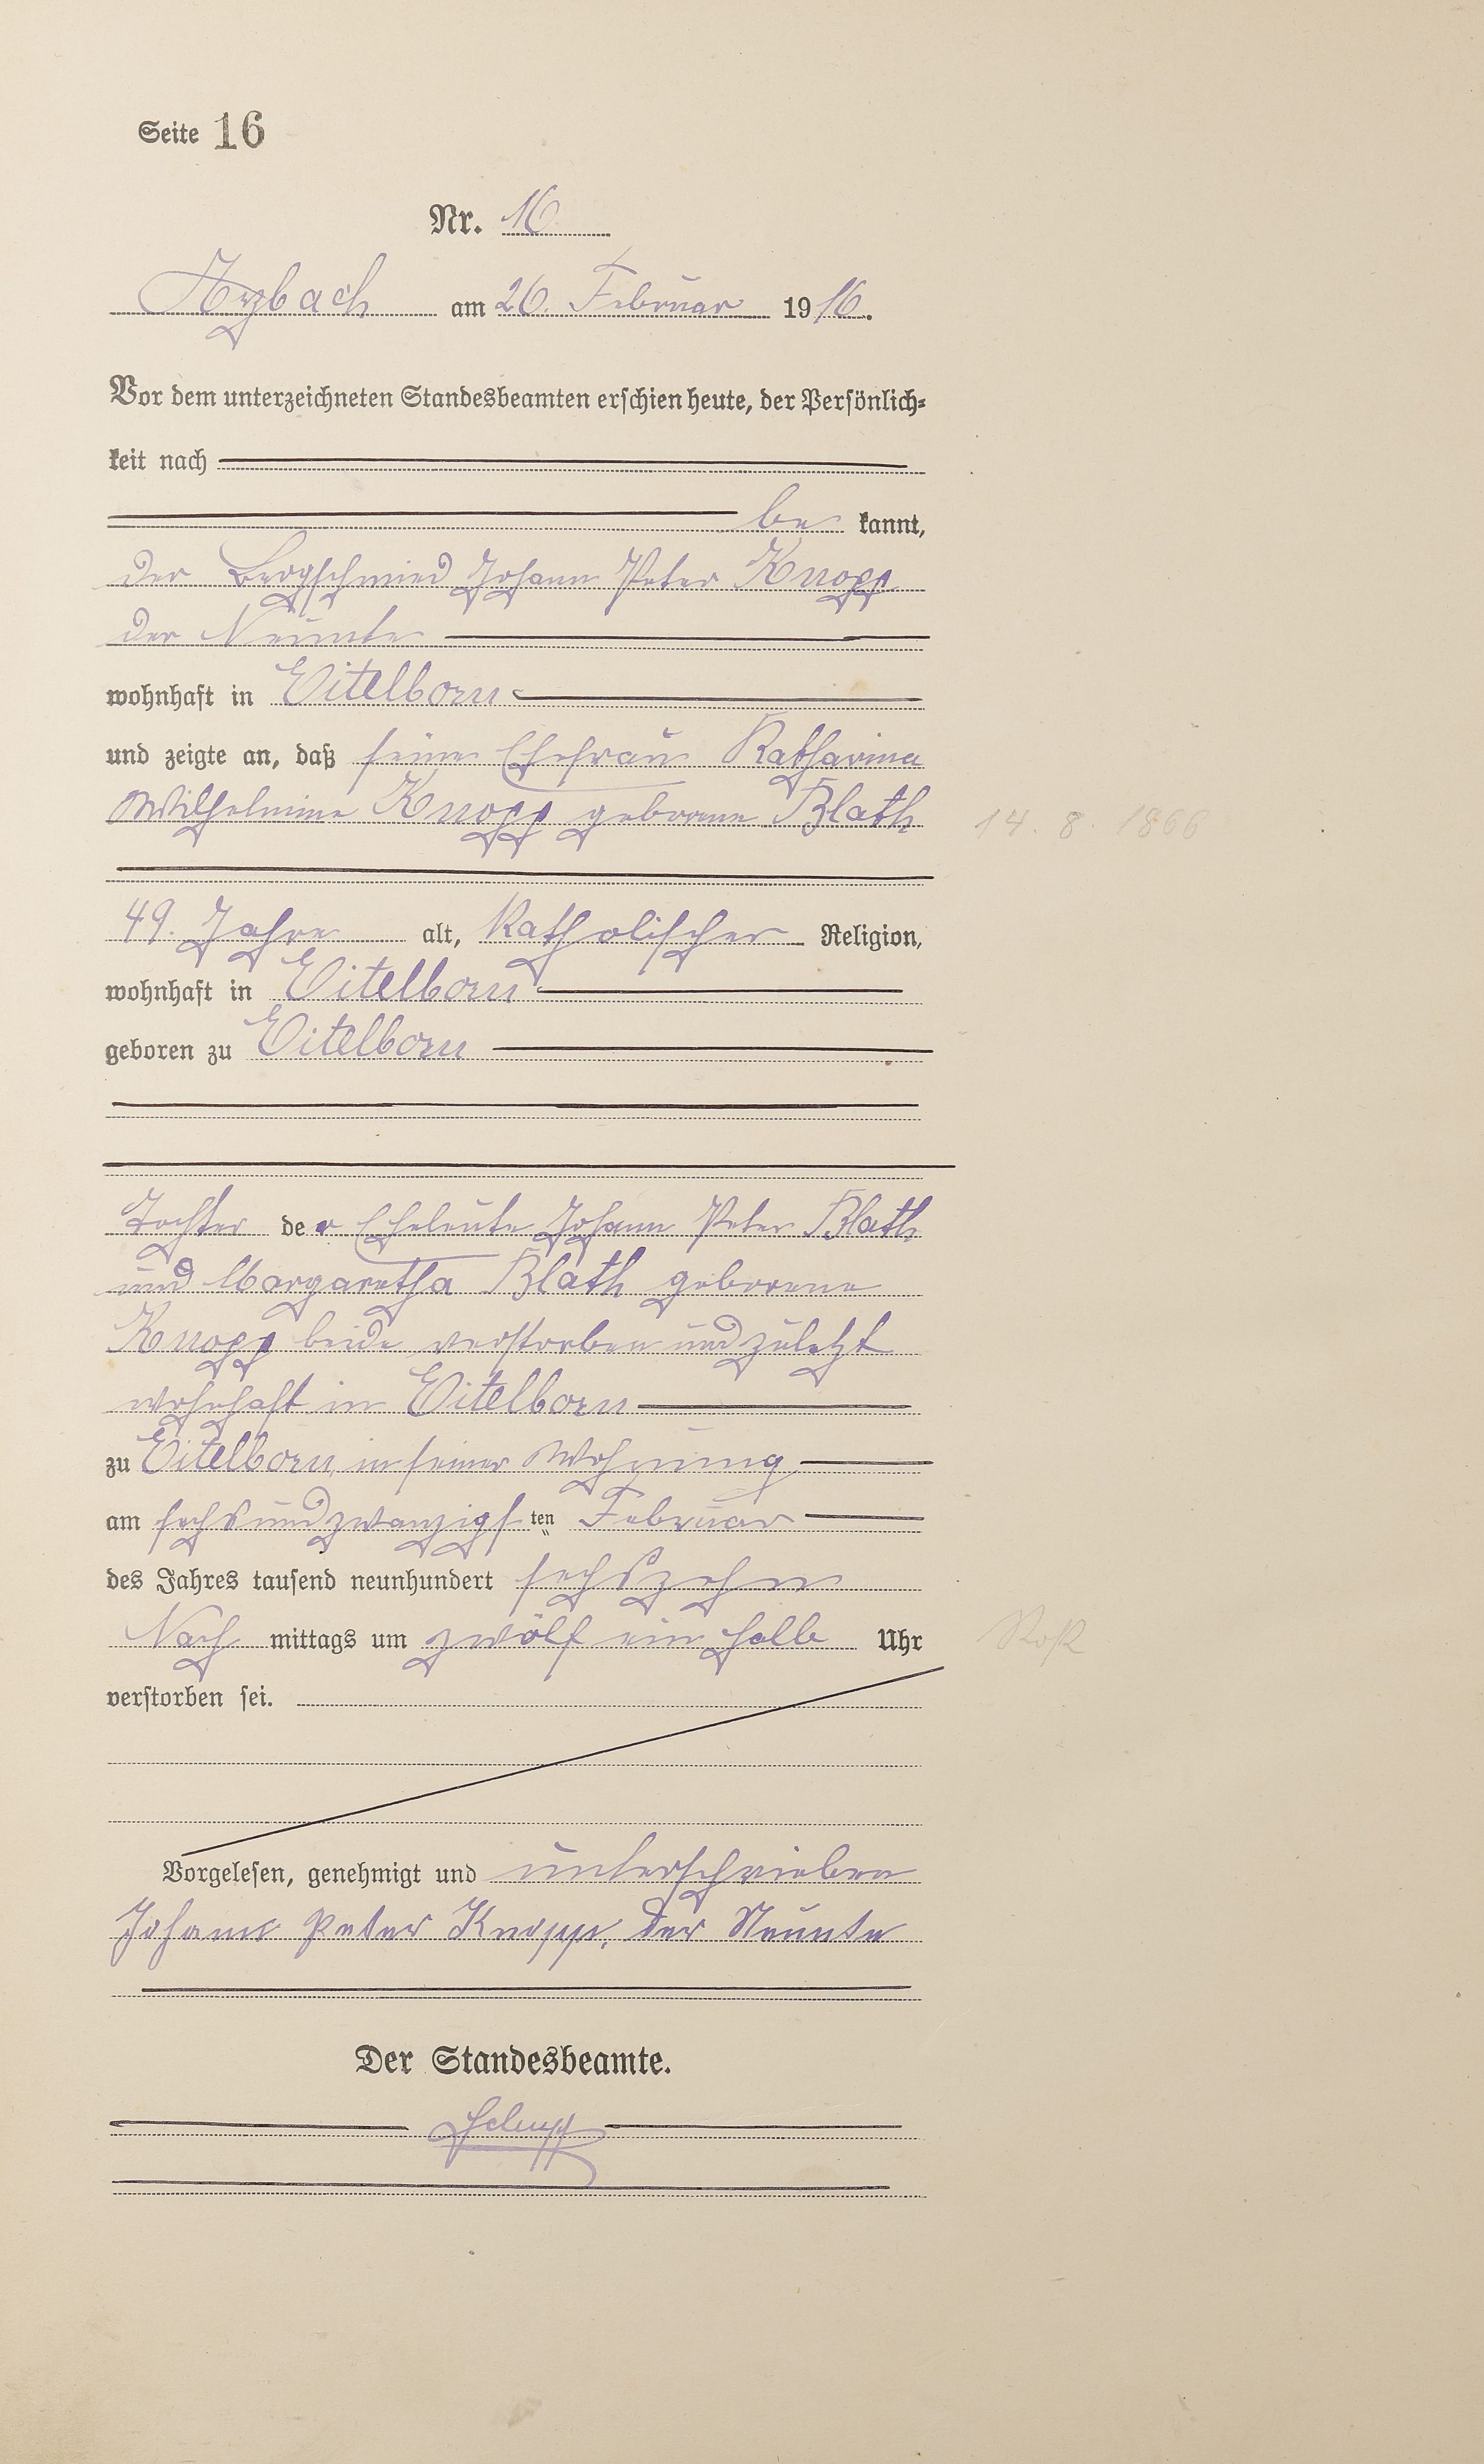 Seite 16
Nr. 16
Arzbach am 26. Februar 1916.
Vor dem unterzeichneten Standesbeamten erschien heute, der Persönlich-
keit nach
be kannt,
der Bergschmied Johann Peter Knopp
der Neunte
wohnhaft in Eitelborn
und zeigte an, daß seine Ehefrau Katharina
Wilhelmine Knopp geborene Blath
14. 8. 1866
49. Jahre alt, katholischer Religion,
wohnhaft in Eitelborn
geboren zu Eitelborn
Tochter der Eheleute Johann Peter Blath
und Margaretha Blath geborene
Knopp beide verstorben und zuletzt
wohnhaft in Eitelborn
zu Eitelborn, in seiner Wohnung
am sechsundzwanzigsten Februar
des Jahres tausend neunhundert sechszehn
Nach mittags um zwölf ein halb Uhr
verstorben sei.
Vorgelesen, genehmigt und unterschrieben
Johann Peter Knopp, der Neunte
Der Standesbeamte.